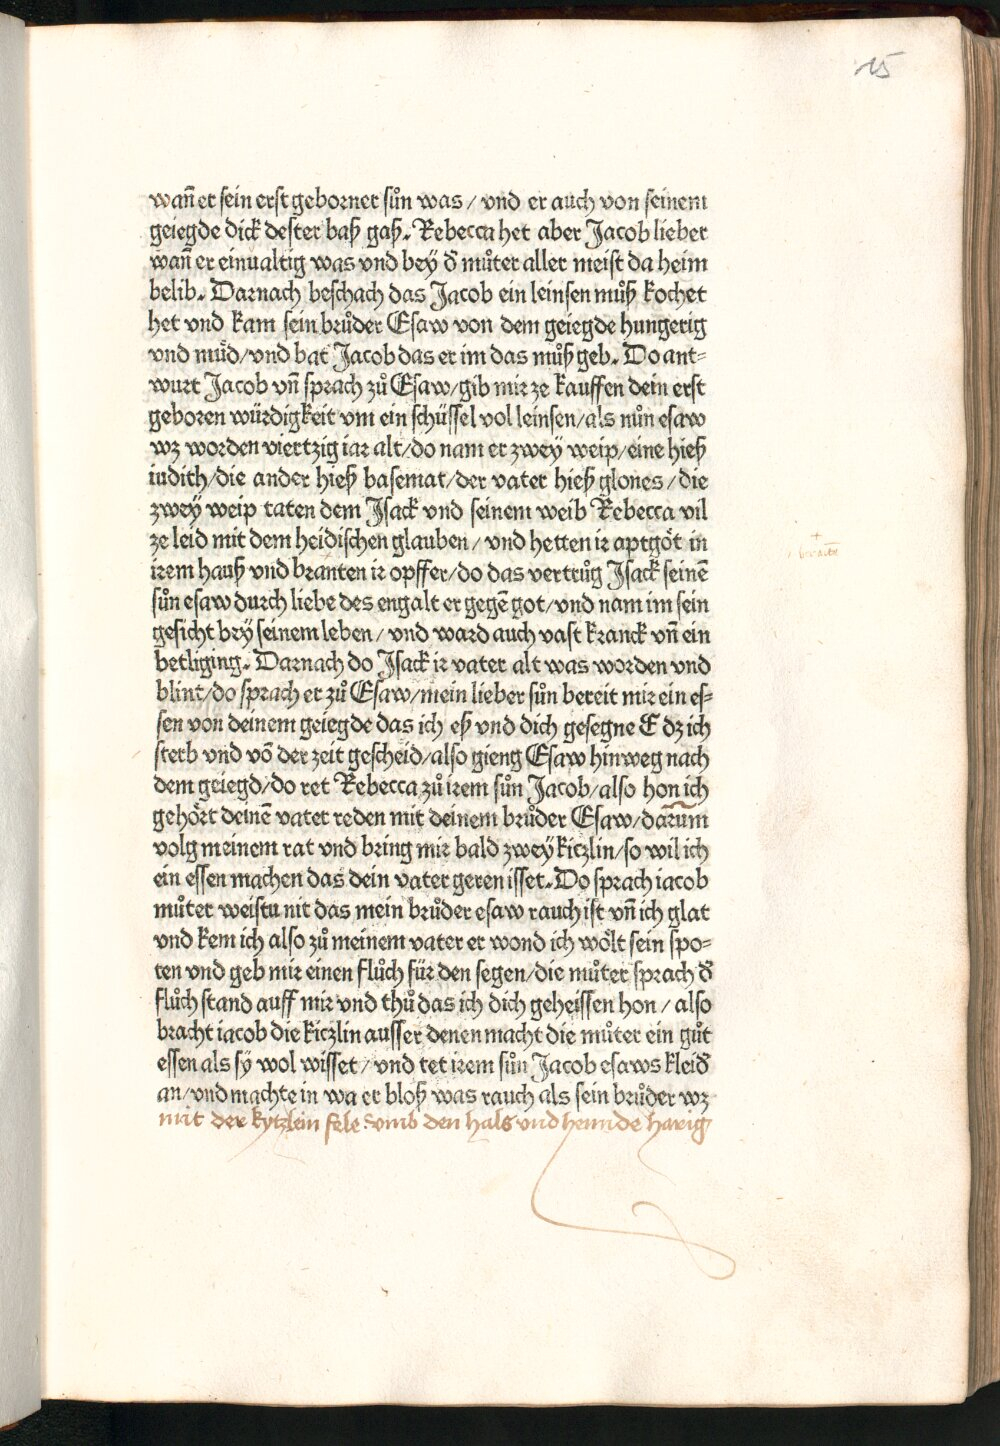 15
wañ er sein erst geborner sůn was / vnd er auch von seinem
geiegde dick dester baß gaß. Rebecca het aber Jacob lieber
wañ er einualtig was vnd bey đ můter aller meist da heim
belib. Darnach beschach das Jacob ein leinsen můß kochet
het vnd kam sein brůder Esaw von dem geiegde hungerig
vnd müd/vnd bat Jacob das er im das můß geb. Do ant⸗
wurt Jacob vñ sprach zů Esaw/gib mir ze kauffen dein erst
geboren würdigkeit vm ein schüssel vol leinsen/als nůn esaw
wz worden viertzig iar alt/do nam er zwey weip/eine hieß
iudith/die ander hieß basemat/der vater hieß glones/die
zwey weip taten dem Jsack vnd seinem weib Rebecca vil
ze leid mit dem heidischen glauben/vnd hetten ir aptgöt in
irem hauß vnd branten ir opffer/do das vertrůg Jsack seinē
sůn esaw durch liebe des engalt er gegē got/vnd nam im sein
gesicht bey seinem leben/vnd ward auch vast kranck vñ ein
betliging. Darnach do Jsack ir vater alt was worden vnd
blint/do sprach er zů Esaw/mein lieber sůn bereit mir ein es⸗
sen von deinem geiegde das ich eß vnd dich gesegne E dz ich
sterb vnd vō der zeit gescheid/also gieng Esaw hinweg nach
dem geiegd/do ret Rebecca zů irem sůn Jacob/also hon ich
gehört deinē vater reden mit deinem brůder Esaw/darum
volg meinem rat vnd bring mir bald zwey kiczlin/so wil ich
ein essen machen das dein vater geren isset. Do sprach iacob
můter weistu nit das mein brůder esaw rauch ist vñ ich glat
vnd kem ich also zů meinem vater er wond ich wölt sein spo⸗
ten vnd geb mir einen flůch für den segen/die můter sprach đ
flůch stand auff mir vnd thů das ich dich geheissen hon/also
bracht iacob die kiczlin ausser denen macht die můter ein gůt
essen als sy wol wisset/vnd tet irem sůn Jacob esaws kleiđ
an/vnd machte in wa er bloß was rauch als sein brůder wz
mit der kytzlein fele vmb den hals vnd hennde harig